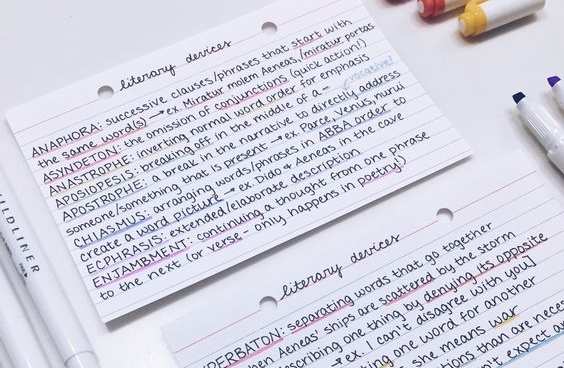 literary devices
ANAPHORA: successive clauses/phrases that start with
the same word(s) → ex. Miratur molem Aeneas, /miratur portas
ASYNDETON: the omission of conjunctions (quick action!)
ANASTROPHE: inverting normal word order for emphasis
APOSIOPESIS: breaking off in the middle of a –
vocative!
APOSTROPHE: a break in the narrative to directly address
someone/something that is present → ex. Parce, Venus, nurui
CHIASMUS: arranging words/phrases in ABBA order to
create a word picture → ex. Dido & Aeneas in the cave
ECPHRASIS: extended/elaborate description
ENJAMBMENT: continuing a thought from one phrase
to the next (or verse – only happens in poetry!)
ILDLINER
literary devices
PERBATON: separating words that go together
hen Aeneas' ships are scattered by the storm
scribing one thing by denying its opposite
→ ex. I can't disagree with you]
ting one word for another
she means war
tions than we neces
't expect a